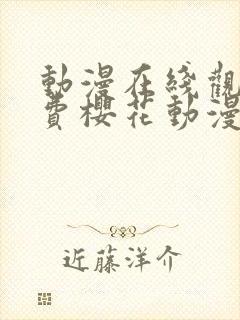 動漫在綫觀
費櫻花動漫
近藤洋介